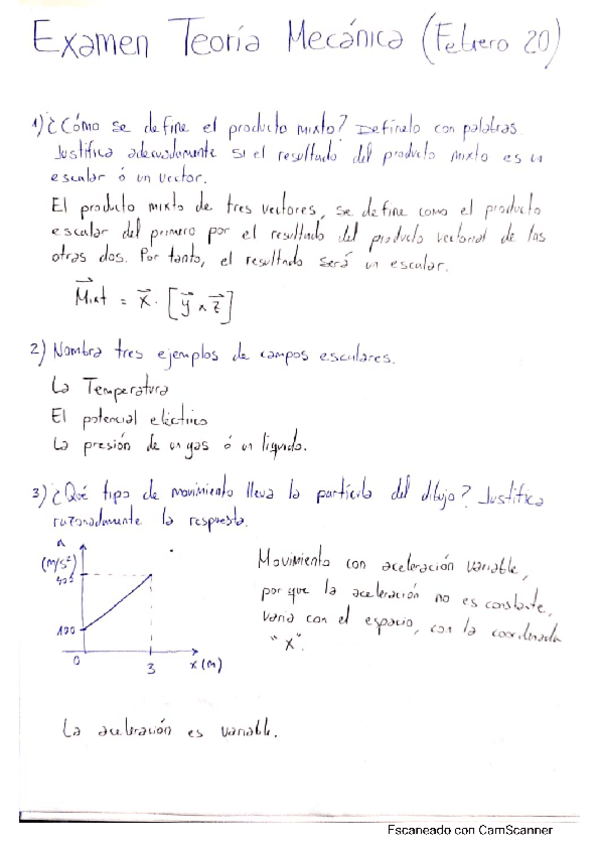 Examen Teoría Mecánica (Febrero 20)
1) ¿Cómo se define el producto mixto? Defínelo con palabras.
Justifica adecuadamente si el resultado del producto mixto es un
escalar ó un vector.
El producto mixto de tres vectores, se define como el producto
escalar del primero por el resultado del producto vectorial de las
otras dos. Por tanto, el resultado será un escalar.
Mixt = x · [y ∧ z]
2) Nombra tres ejemplos de campos escalares.
La Temperatura
El potencial eléctrico
La presión de un gas ó un líquido.
3) ¿Qué tipo de movimiento lleva la partícula del dibujo? Justifica
razonadamente la respuesta.
a
(m/s²)
120
0
3
x (m)
Movimiento con aceleración variable,
por que la aceleración no es constante,
varia con el espacio, con la coordenada
"x".
La aceleración es variable.
Escaneado con CamScanner